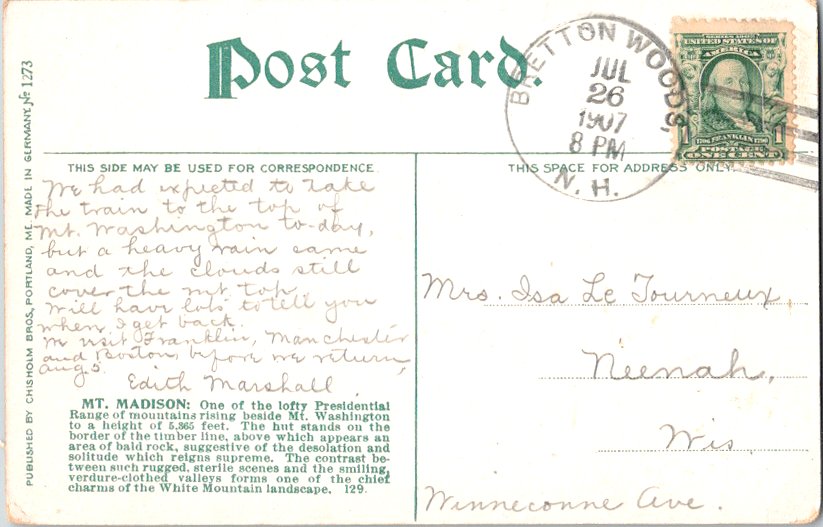 Post Card.
BRETTON WOODS,
N. H.
JUL
26
1907
8 PM
SERIES 1902
UNITED STATES OF
AMERICA
1706 FRANKLIN 1790
1 1
POSTAGE
ONE CENT
THIS SIDE MAY BE USED FOR CORRESPONDENCE
THIS SPACE FOR ADDRESS ONLY.
PUBLISHED BY CHISHOLM BROS, PORTLAND, ME. MADE IN GERMANY. No 1273
We had expected to take
the train to the top of
Mt. Washington to-day,
but a heavy rain came
and the clouds still
cover the mt top.
Will have lots to tell you
when I get back.
We visit Franklin, Manchester
and Boston, before we return,
Aug 5.
Edith Marshall
MT. MADISON: One of the lofty Presidential
Range of mountains rising beside Mt. Washington
to a height of 5,365 feet. The hut stands on the
border of the timber line, above which appears an
area of bald rock, suggestive of the desolation and
solitude which reigns supreme. The contrast be-
tween such rugged, sterile scenes and the smiling,
verdure-clothed valleys forms one of the chief
charms of the White Mountain landscape. 129.
Mrs. Isa Le Tourneux,
Neenah,
Wis
Winneconne Ave.